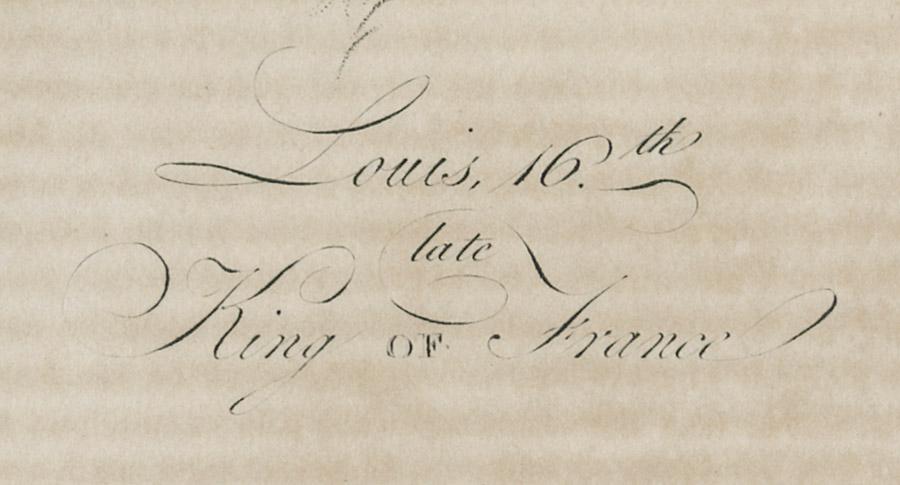 Louis, 16.th
late
King OF France